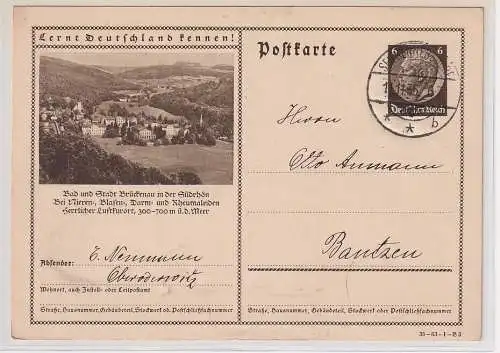 Lernt Deutschland kennen!
Bad und Stadt Brückenau in der Südrhön
Bei Nieren-, Blasen-, Darm- und Rheumaleiden
Herrlicher Luftkurort, 300-700 m ü.d.Meer
Absender: E. Neumann
Oberoderwitz
Wohnort, auch Zustell- oder Leitpostamt
Straße, Hausnummer, Gebäudeteil, Stockwerk od. Postschließfachnummer
Postkarte
6 6
Deutsches Reich
b
Herrn
Otto Ammann
Bautzen
Straße, Hausnummer, Gebäudeteil, Stockwerk oder Postschließfachnummer